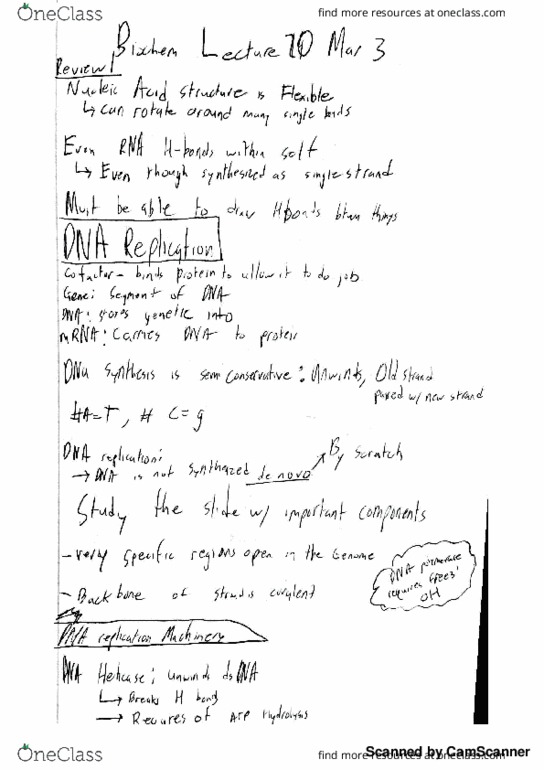 OneClass
find more resources at oneclass.com
Biochem Lecture 10 Mar 3
Review!
Nucleic Acid structure is Flexible
↳ can rotate around many single bonds
Even RNA H-bonds within self
↳ Even though synthesized as single strand
Must be able to draw H bonds btwn things
DNA Replication
Cofactor - binds protein to allow it to do job
Gene: Segment of DNA
DNA: stores genetic info
mRNA: Carries DNA to protein
DNA Synthesis is semi conservative: Unwinds, Old strand
paired w/ new strand
#A=T, # C=g
DNA replication:
→ DNA is not synthesized de novo ↗ By scratch
Study the slide w/ important components
- very specific regions open in the Genome
- Backbone of strand is covalent
DNA polymerase
requires free 3'
OH
DNA replication Machinery
DNA Helicase: unwinds dsDNA
↳ Breaks H bonds
→ of ATP Hydrolysis
Scanned by CamScanner
OneClass
find more resources at oneclass.com